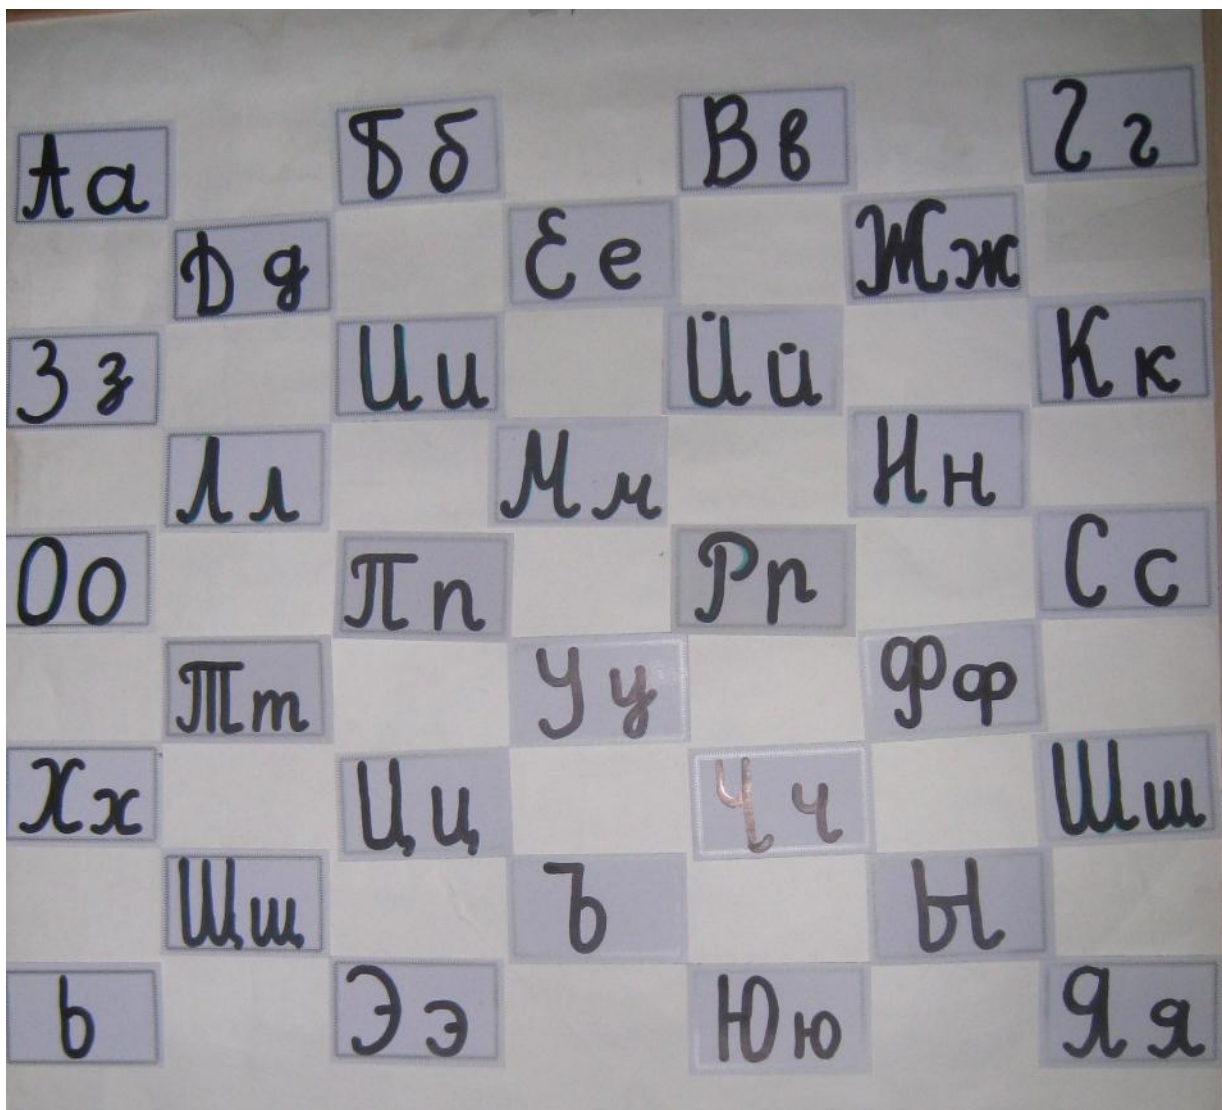 Аа Бб Вв Гг
Дд Ее Жж
Зз Ии Йй Кк
Лл Мм Нн
Оо Пп Рр Сс
Тт Уу Фф
Хх Цц Чч Шш
Щщ Ъ Ы
Ь Ээ Юю Яя